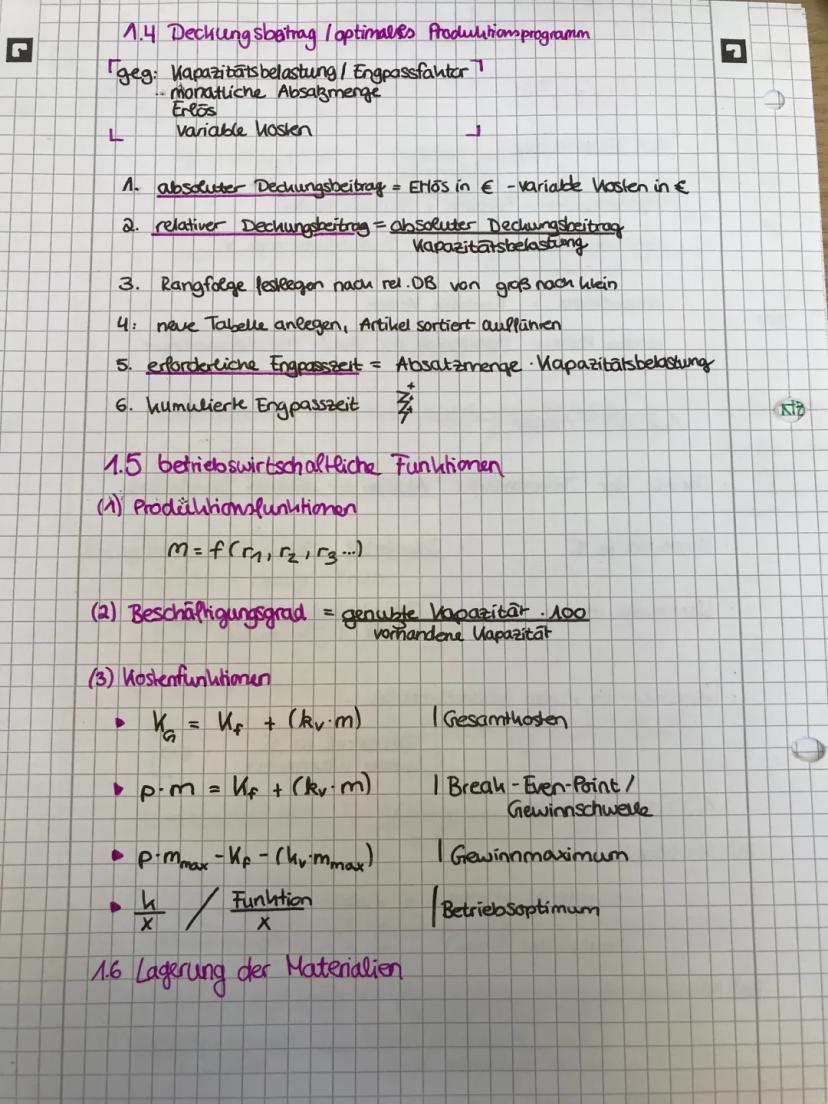 1.4 Deckungsbeitrag / optimales Produktionsprogramm
geg: Kapazitätsbelastung / Engpassfaktor
monatliche Absatzmenge
Erlös
variable Kosten
1. absoluter Deckungsbeitrag = Erlös in € - variable Kosten in €
2. relativer Deckungsbeitrag = absoluter Deckungsbeitrag
Kapazitätsbelastung
3. Rangfolge festlegen nach rel. DB von groß nach klein
4. neue Tabelle anlegen, Artikel sortiert aufführen
5. erforderliche Engpasszeit = Absatzmenge · Kapazitätsbelastung
6. kumulierte Engpasszeit
1.5 betriebswirtschaftliche Funktionen
(1) Produktionsfunktionen
m = f(r₁, r₂, r₃ ...)
(2) Beschäftigungsgrad = genutzte Kapazität · 100
vorhandene Kapazität
(3) Kostenfunktionen
K_G = K_f + (k_v · m) | Gesamtkosten
p · m = K_f + (k_v · m) | Break-Even-Point /
Gewinnschwelle
p · m_max - K_f - (k_v · m_max) | Gewinnmaximum
k/x / Funktion/x | Betriebsoptimum
1.6 Lagerung der Materialien